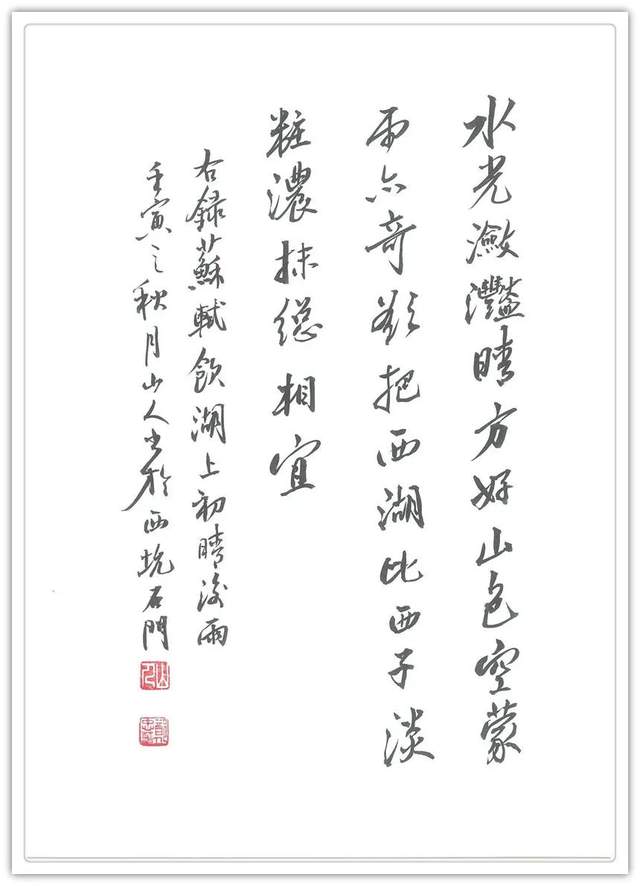 水光瀲灩晴方好山色空蒙
雨亦奇欲把西湖比西子淡
粧濃抹總相宜
右錄蘇軾飲湖上初晴後雨
壬寅之秋月山人書於西坑石門
山人